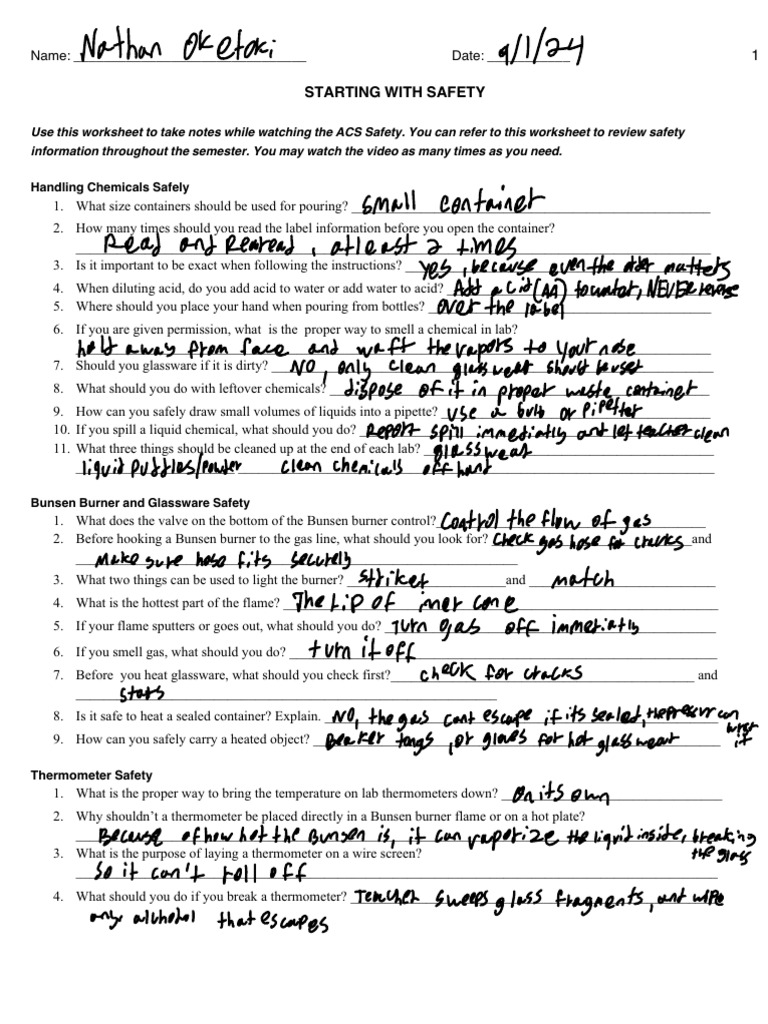 Name: Nathan Oketoki Date: 9/1/24 1
STARTING WITH SAFETY
Use this worksheet to take notes while watching the ACS Safety. You can refer to this worksheet to review safety
information throughout the semester. You may watch the video as many times as you need.
Handling Chemicals Safely
1. What size containers should be used for pouring? small container
2. How many times should you read the label information before you open the container?
Read and Reread, atleast 2 times
3. Is it important to be exact when following the instructions? yes, because even the order matters
4. When diluting acid, do you add acid to water or add water to acid? Add acid (AA) to water, NEVER reverse
5. Where should you place your hand when pouring from bottles? over the label
6. If you are given permission, what is the proper way to smell a chemical in lab?
hold away from face and waft the vapors to your nose
7. Should you glassware if it is dirty? NO, only clean glasswear should be used
8. What should you do with leftover chemicals? dispose of it in proper waste container
9. How can you safely draw small volumes of liquids into a pipette? use a bulb or pipetter
10. If you spill a liquid chemical, what should you do? Report spill immediatly and let teacher clean
11. What three things should be cleaned up at the end of each lab? glasswear
liquid puddles/powder clean chemicals off hand
Bunsen Burner and Glassware Safety
1. What does the valve on the bottom of the Bunsen burner control? Control the flow of gas
2. Before hooking a Bunsen burner to the gas line, what should you look for? Check gas hose for cracks and
make sure hose fits securely
3. What two things can be used to light the burner? striker and match
4. What is the hottest part of the flame? The tip of iner cone
5. If your flame sputters or goes out, what should you do? Turn gas off immeriatly
6. If you smell gas, what should you do? turn it off
7. Before you heat glassware, what should you check first? check for cracks and
stars
8. Is it safe to heat a sealed container? Explain. NO, the gas cant escape if its sealed, the pressur can
burst it
9. How can you safely carry a heated object? Beaker tongs, or gloves for hot glasswear
Thermometer Safety
1. What is the proper way to bring the temperature on lab thermometers down? On its own
2. Why shouldn't a thermometer be placed directly in a Bunsen burner flame or on a hot plate?
Because of how hot the Bunsen is, it can vaporize the liquid inside, breaking
the glass
3. What is the purpose of laying a thermometer on a wire screen?
So it can't roll off
4. What should you do if you break a thermometer? Teacher sweeps glass fragments, and wipe
any alcohol that escapes